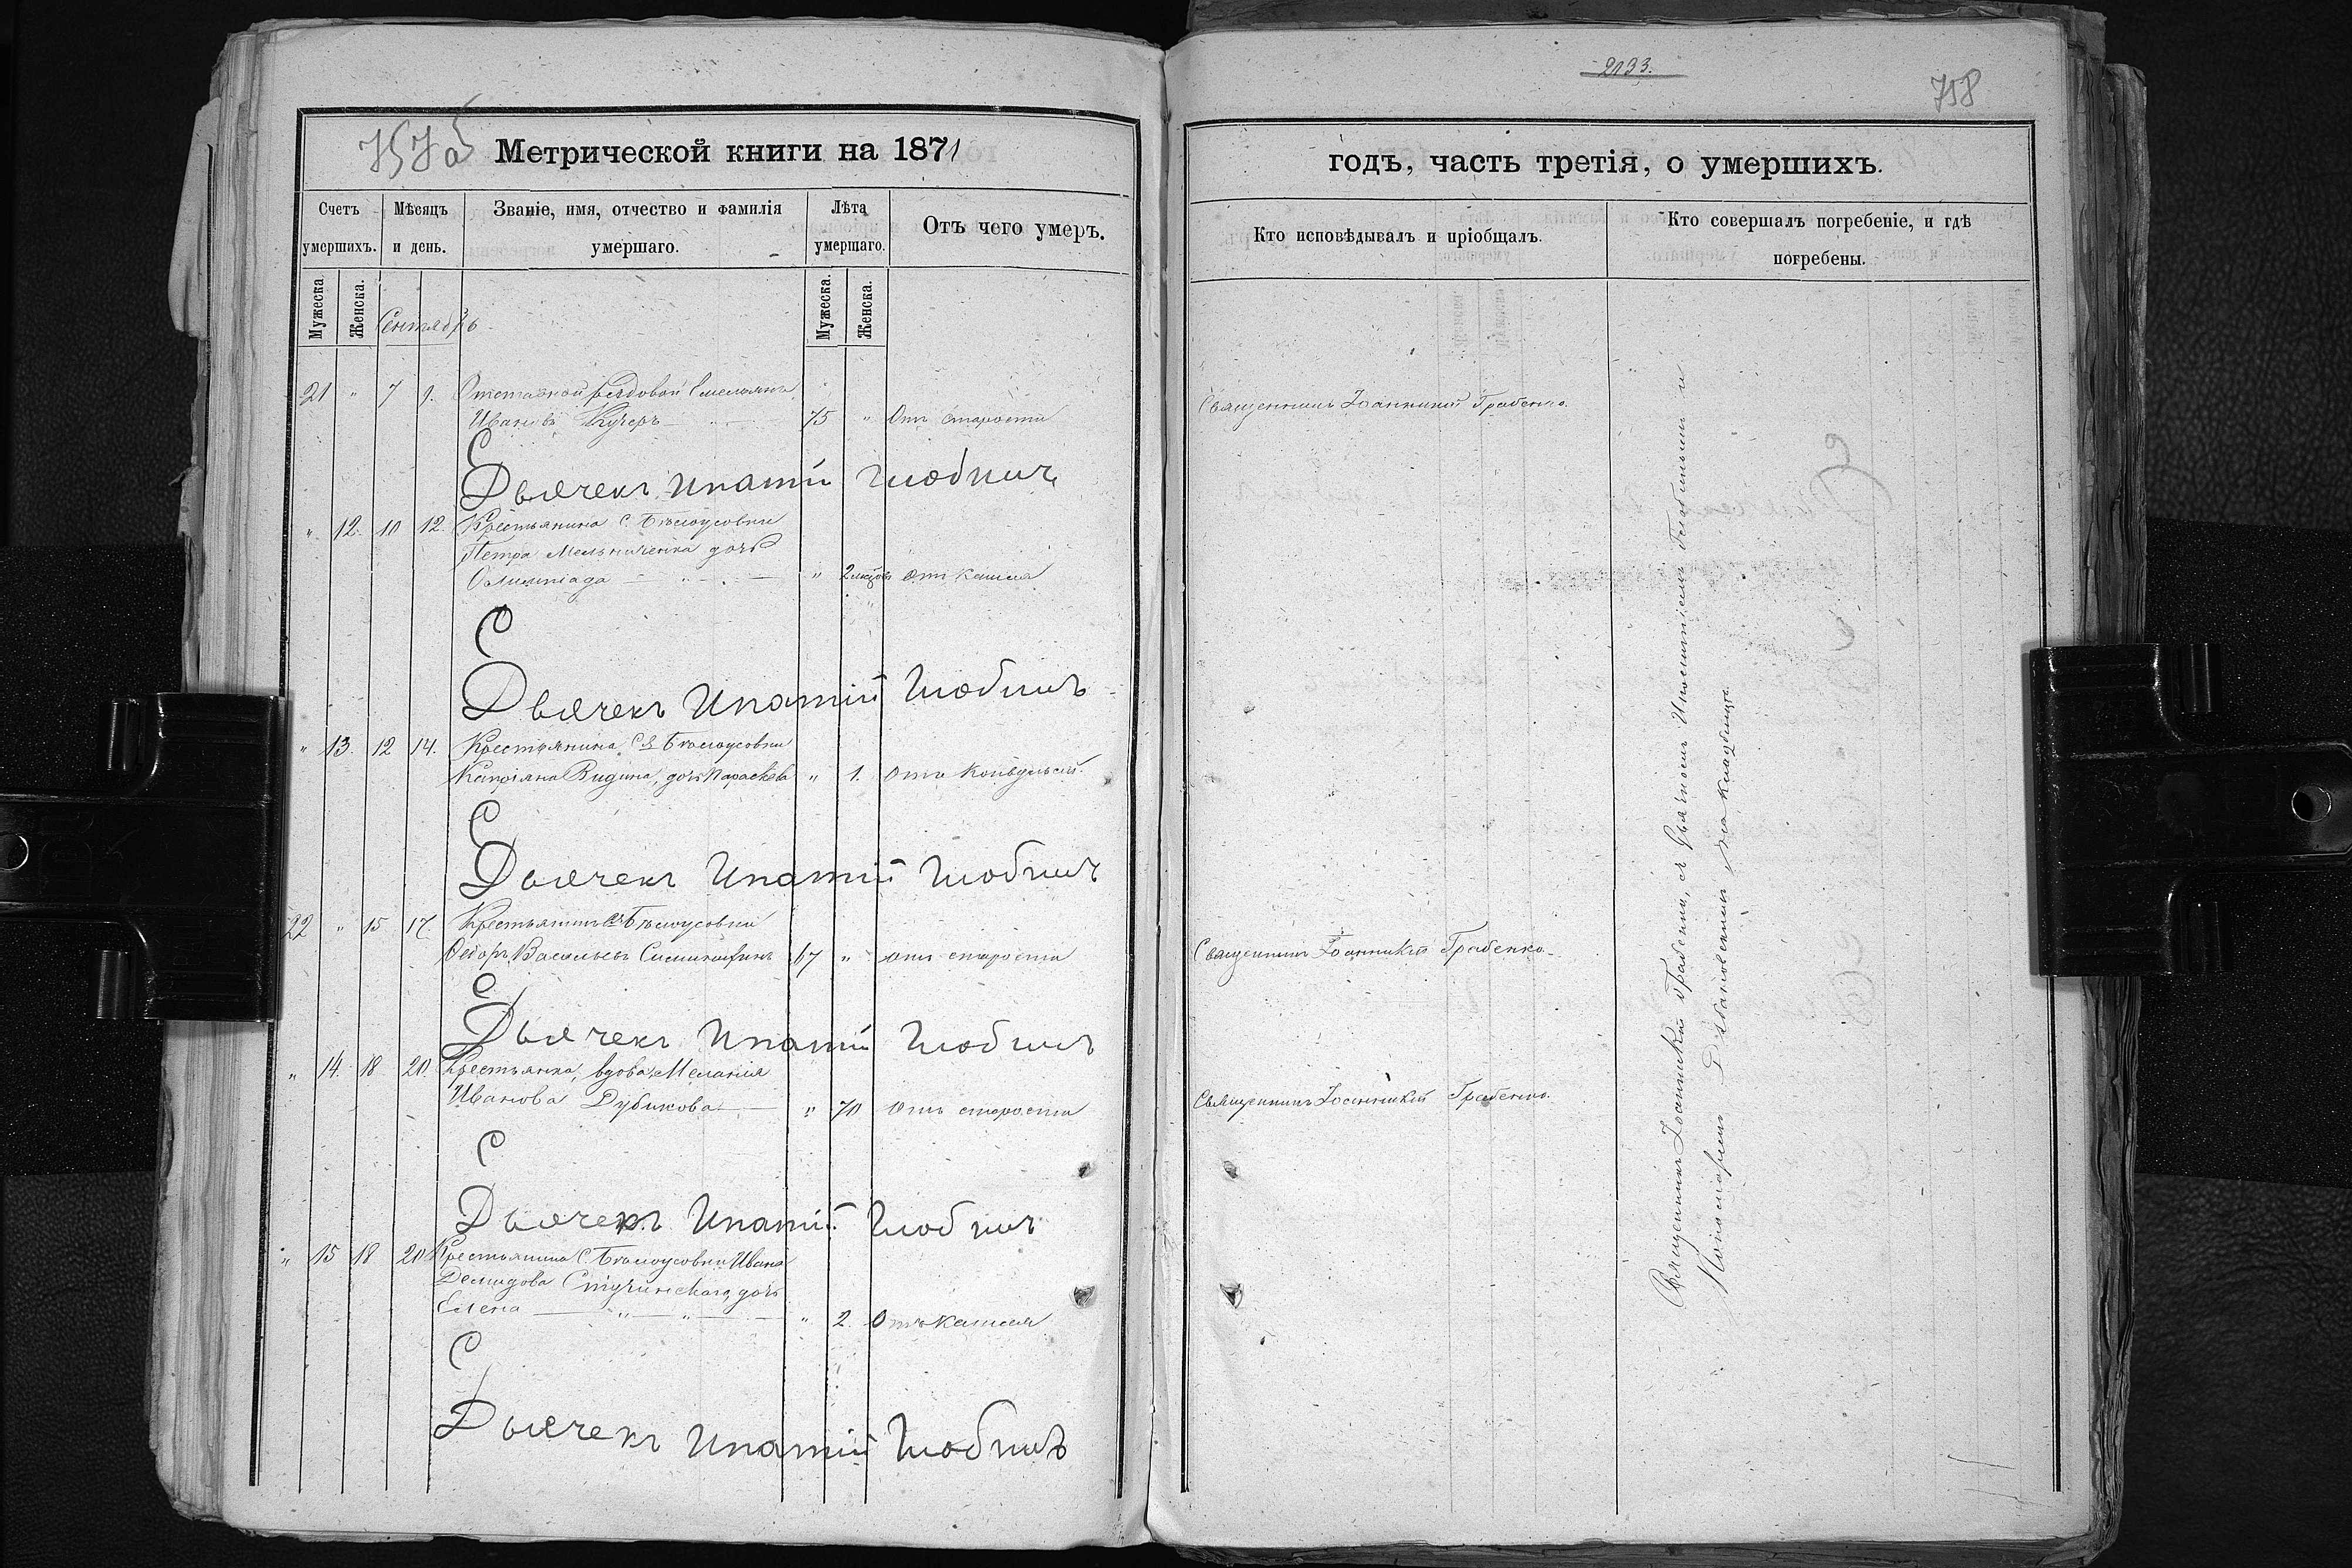 2133.
758
757 об
Метрической книги на 1871
годъ, часть третія, о умершихъ.
Счетъ умершихъ.
Мѣсяцъ и день.
Званіе, имя, отчество и фамилія умершаго.
Лѣта умершаго.
Отъ чего умеръ.
Кто исповѣдывалъ и пріобщалъ.
Кто совершалъ погребеніе, и гдѣ погребены.
Мужеска. Женска.
Сентябрь
Мужеска. Женска.
21 " 7 9. Отставной рядовой Емельянъ
Ивановъ Кучеръ 75 " Отъ старости
Священникъ Іоанникій Грабенко.
Дьячекъ Ипатій
" 12. 10 12. Крестьянина с. Бѣлоусовки
Петра Мельниченка дочь
Олимпіада " 2 мѣсяц. отъ кашля
Дьячекъ Ипатій
" 13. 12 14. Крестьянина с. Бѣлоусовки
дочь Параскева " 1. отъ
Дьячекъ Ипатій
22 " 15 17. Крестьянинъ с. Бѣлоусовки
Ѳедоръ Васильевъ 67 " отъ старости
Священникъ Іоанникій Грабенко.
Дьячекъ Ипатій
" 14. 18 20. Крестьянка, вдова Меланія
Иванова Дубикова " 70 отъ старости
Священникъ Іоанникій Грабенко.
Дьячекъ Ипатій
" 15 18 20 Крестьянина с. Бѣлоусовки Ивана
Демидова Стучинскаго, дочь
Елена " 2. Отъ кашля
Дьячекъ Ипатій
Священникъ Іоанникій Грабенко, съ дьячкомъ Ипатіемъ и
Пономаремъ на кладбищѣ.